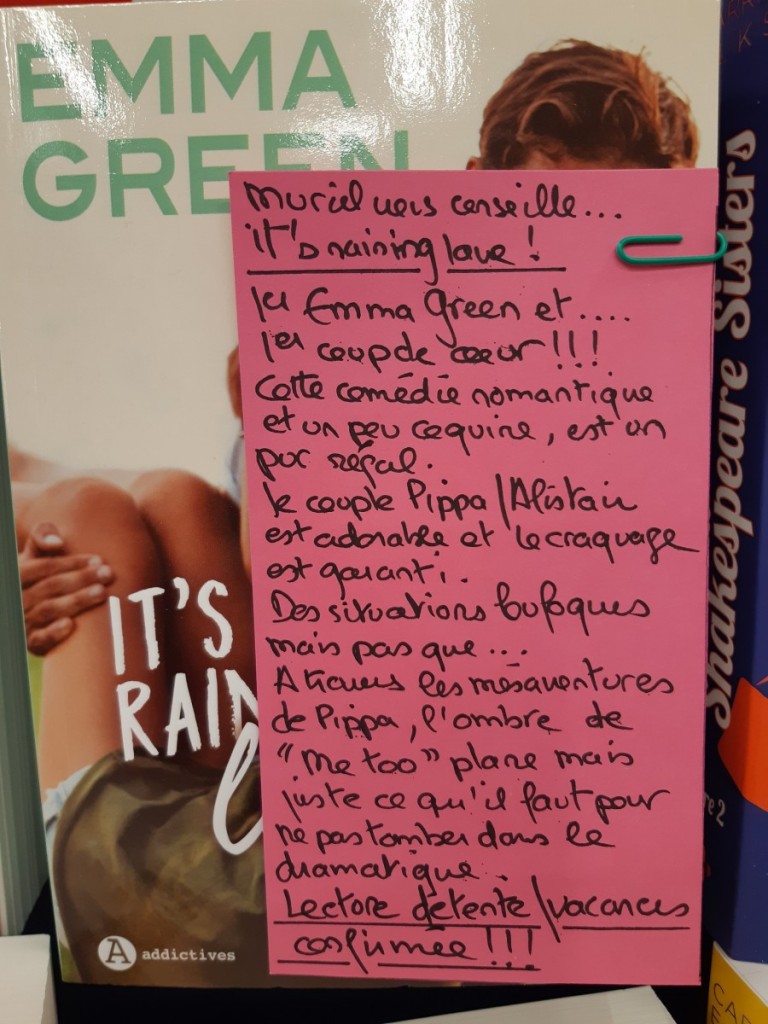 EMMA
GREEN
Muriel vous conseille...
it's raining love !
1er Emma Green et....
1er coup de cœur !!!
Cette comédie romantique
et un peu coquine, est un
pur régal.
le couple Pippa/Alistair
est adorable et le craquage
est garanti.
Des situations loufoques
mais pas que...
A travers les mésaventures
de Pippa, l'ombre de
"Me too" plane mais
juste ce qu'il faut pour
ne pas tomber dans le
dramatique.
Lecture détente/vacances
confirmée !!!
IT'S
RAIN
A addictives
Shakespeare Sisters
re 2